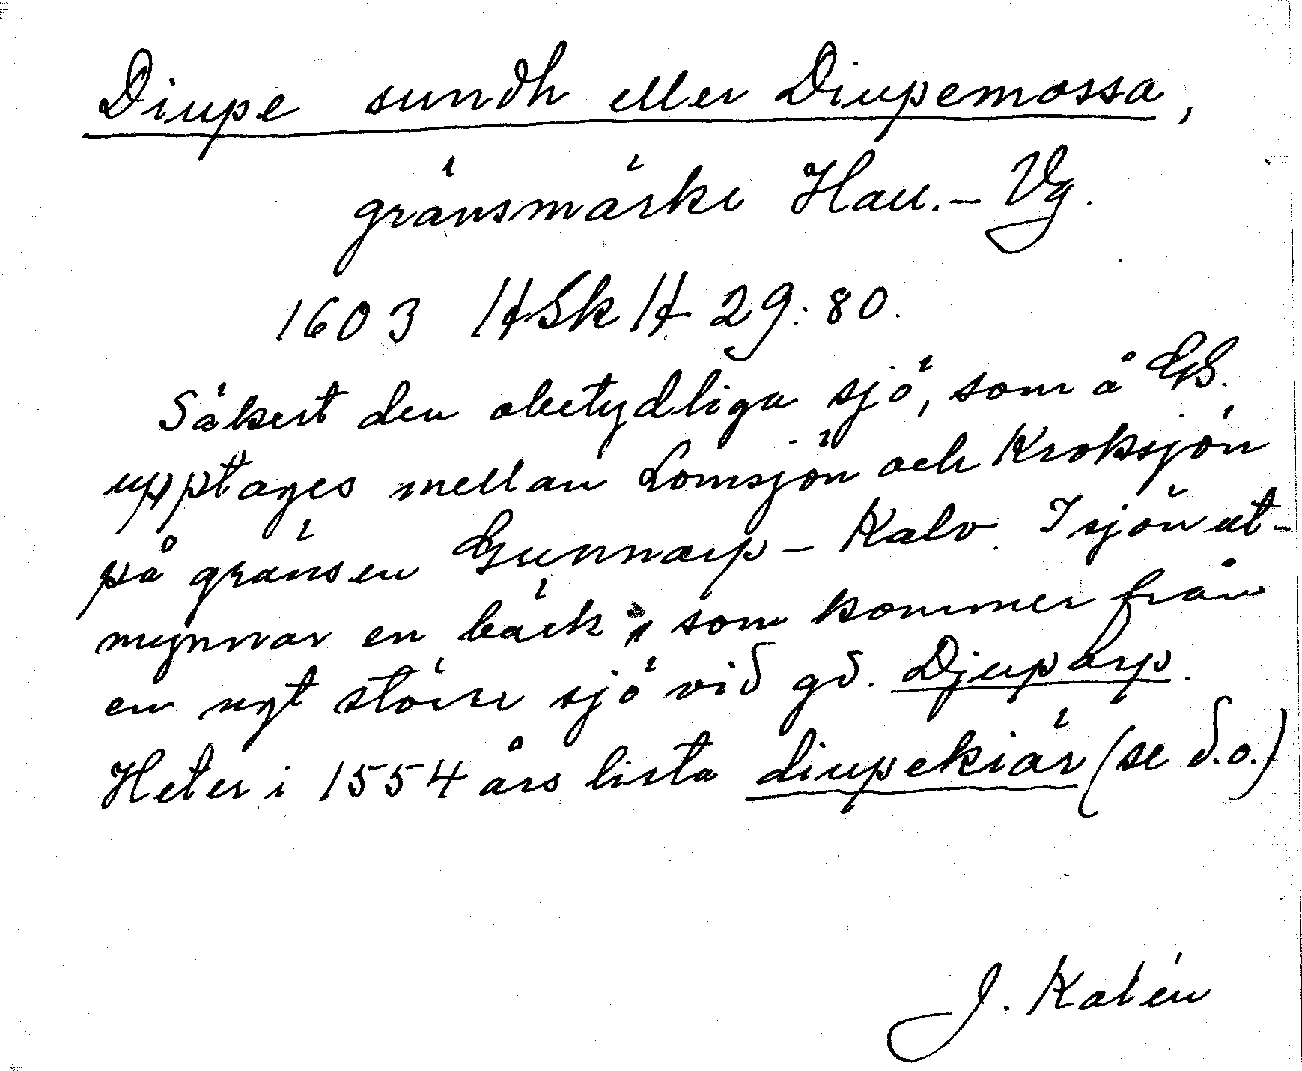 Diupe sundh eller Diupemossa,
gränsmärke Hall.– Vg.
1603 HSk H 29:80.
Säkert den obetydliga sjö, som å GS.
upptages mellan Lomsjön och Kroksjön
på gränsen Gunnarp – Kalv. I sjön ut-
mynnar en bäck, som kommer från
en ngt större sjö vid gd. Djuparp.
Heter i 1554 års lista diupekiär (se d.o.)
J. Kalén